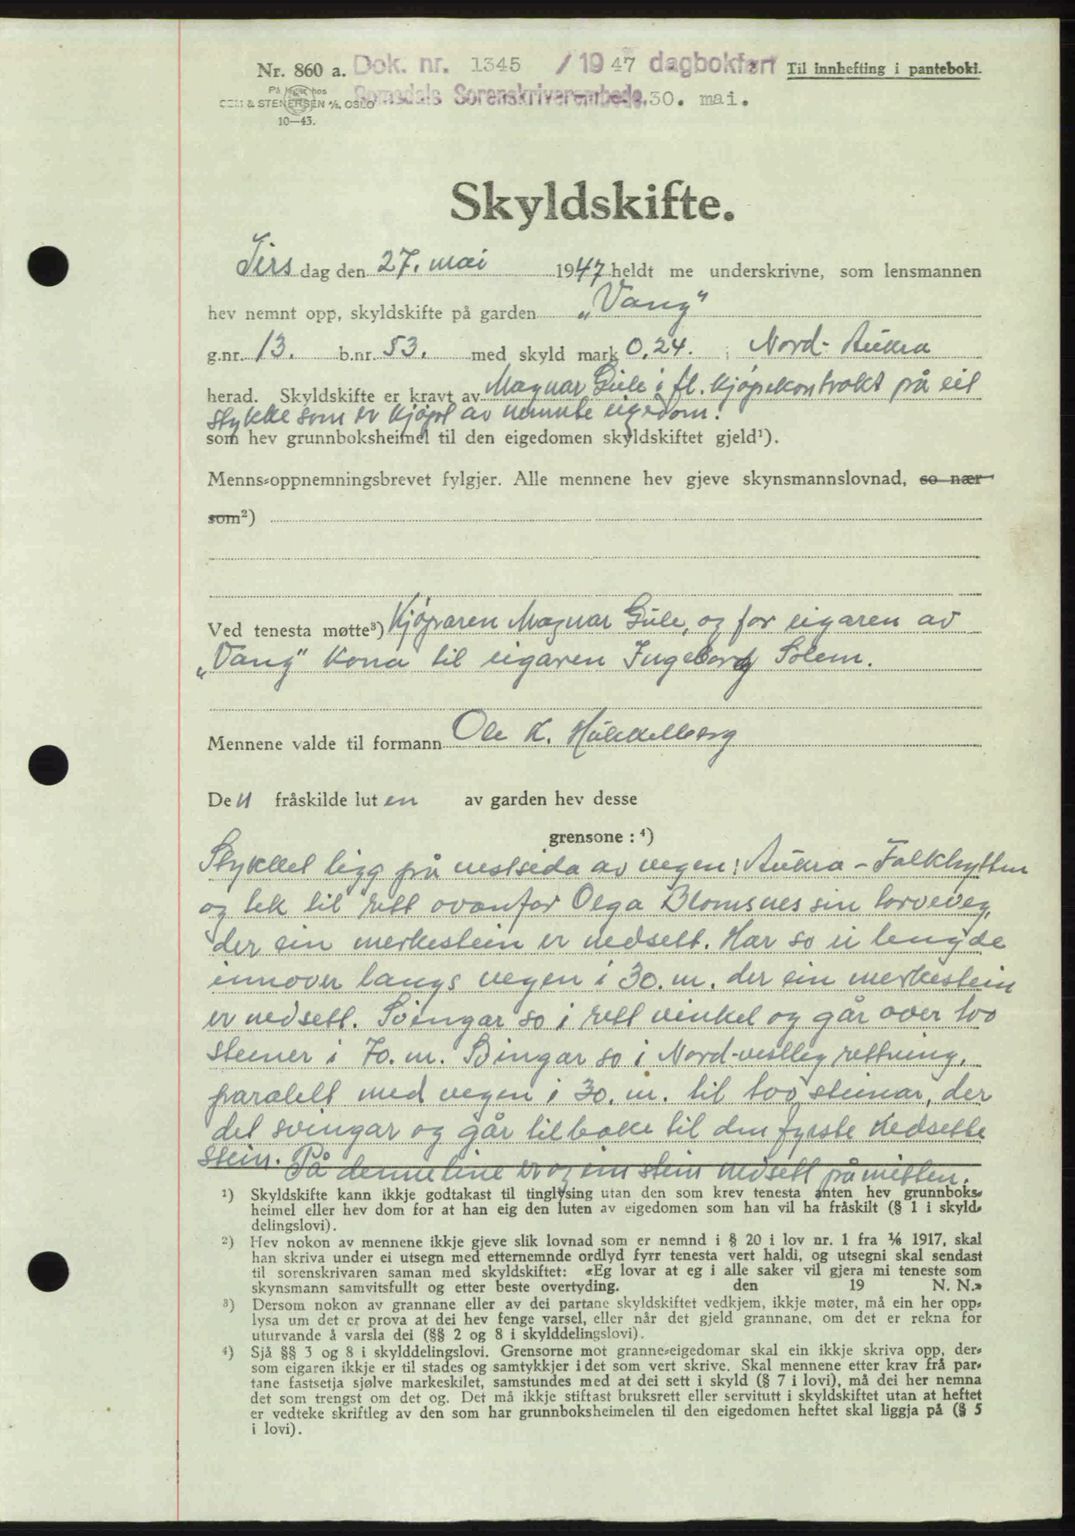 Nr. 860 a. Dok. nr. 1345 / 19 47 dagbokført Til innhefting i panteboki.
På lager hos
SEM & STENERSEN A/S, OSLO Romsdals Sorenskriverembede, 30. mai.
10—43.
Skyldskifte.
Tirs dag den 27. mai 1947 heldt me underskrivne, som lensmannen
hev nemnt opp, skyldskifte på garden „Vang"
g.nr. 13. b.nr. 53. med skyld mark 0,24. i Nord-Aukra
herad. Skyldskifte er kravt av Magnar Gule i fl. kjøpekontrakt på eit
stykke som er kjøpt av nemnte eigedom.
som hev grunnboksheimel til den eigedomen skyldskiftet gjeld¹).
Menns-oppnemningsbrevet fylgjer. Alle mennene hev gjeve skynsmannslovnad, so nær
som²)
Ved tenesta møtte³) Kjøparen Magnar Gule, og for eigaren av
„Vang" kona til eigaren Ingeborg Solem.
Mennene valde til formann Ole K.
De n fråskilde lut en av garden hev desse
grensone : ⁴)
Stykket ligg på vestsida av vegen: Aukra - Falkhytten
og tek til rett ovanfor Olga Blomsnes sin torveveg,
der ein merkestein er nedsett. Har so ei lengde
innover langs vegen i 30. m. der ein merkestein
er nedsett. Svengar so i rett vinkel og går over too
steiner i 70. m. Svingar so i Nord-vestleg rettning,
paralelt med vegen i 30. m. til too steinar, der
det svingar og går tilbake til den fyrste nedsette
stein. På denne line er og ein stein nedsett på mitten.
¹) Skyldskifte kann ikkje godtakast til tinglysing utan den som krev tenesta anten hev grunnboks-
heimel eller hev dom for at han eig den luten av eigedomen som han vil ha fråskilt (§ 1 i skyld-
delingslovi).
²) Hev nokon av mennene ikkje gjeve slik lovnad som er nemnd i § 20 i lov nr. 1 fra ⅙ 1917, skal
han skriva under ei utsegn med etternemnde ordlyd fyrr tenesta vert haldi, og utsegni skal sendast
til sorenskrivaren saman med skyldskiftet: «Eg lovar at eg i alle saker vil gjera mi teneste som
skynsmann samvitsfullt og etter beste overtyding. den 19 N. N.»
³) Dersom nokon av grannane eller av dei partane skyldskiftet vedkjem, ikkje møter, må ein her opp-
lysa um det er prova at dei hev fenge varsel, eller når det gjeld grannane, om det er rekna for
uturvande å varsla dei (§§ 2 og 8 i skylddelingslovi).
⁴) Sjå §§ 3 og 8 i skylddelingslovi. Grensorne mot granne-eigedomar skal ein ikkje skriva opp, der-
som eigaren ikkje er til stades og samtykkjer i det som vert skrive. Skal mennene etter krav frå par-
tane fastsetja sjølve markeskilet, samstundes med at dei sett i skyld (§ 7 i lovi), må dei her nemna
det som trengst om det og. Det må ikkje stiftast bruksrett eller servitutt i skyldskiftet utan at heftet
er vedteke skriftleg av den som har grunnboksheimelen til den eigedomen heftet skal liggja på (§ 5
i lovi).